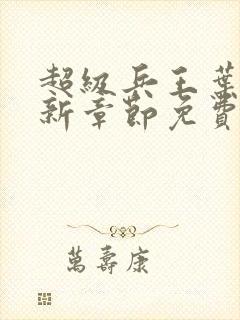 超級兵王葉
新章節免費
萬壽康